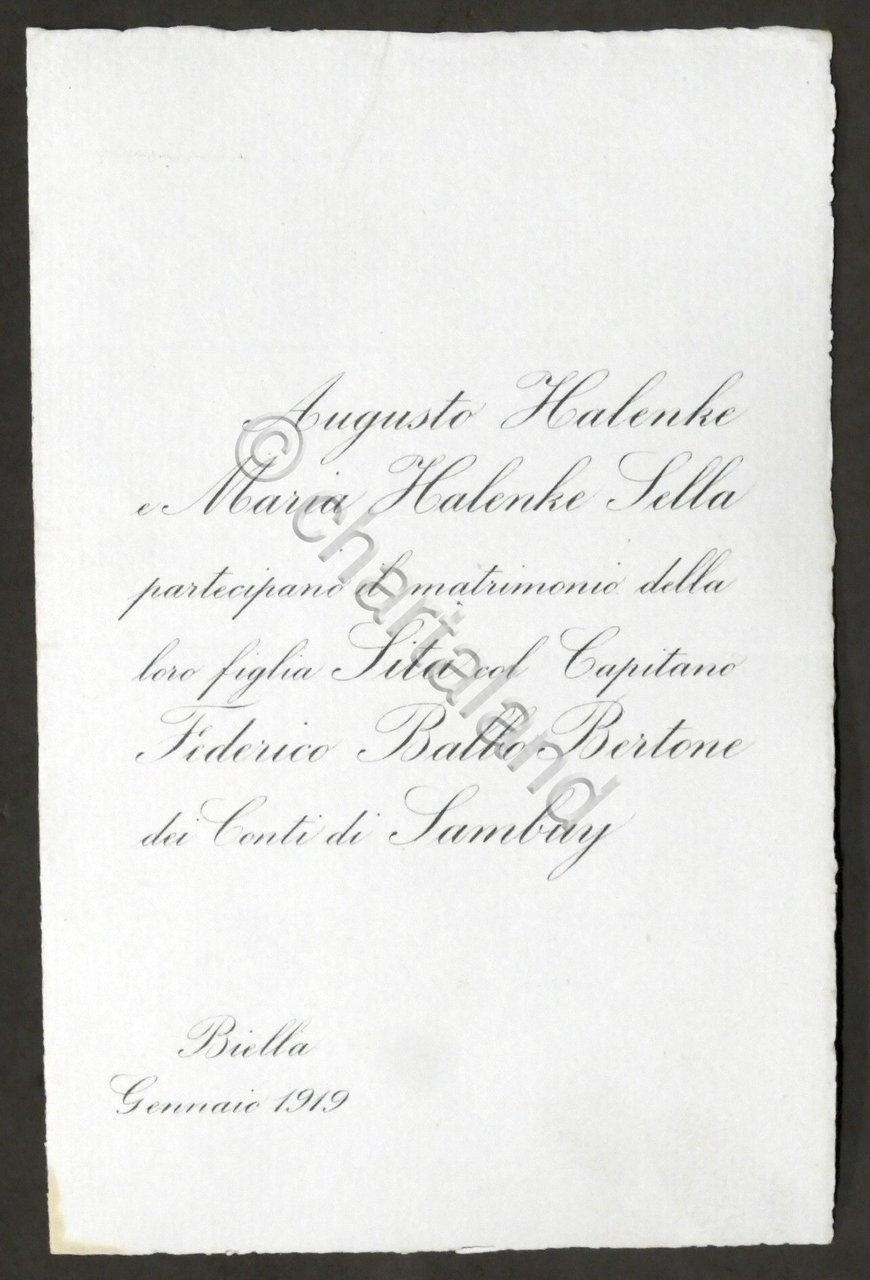 Augusto Halenke
e Maria Halenke Sella
partecipano il matrimonio della
loro figlia Sita col Capitano
Federico Balbo Bertone
dei Conti di Sambuy
Biella
Gennaio 1919
© chartaland